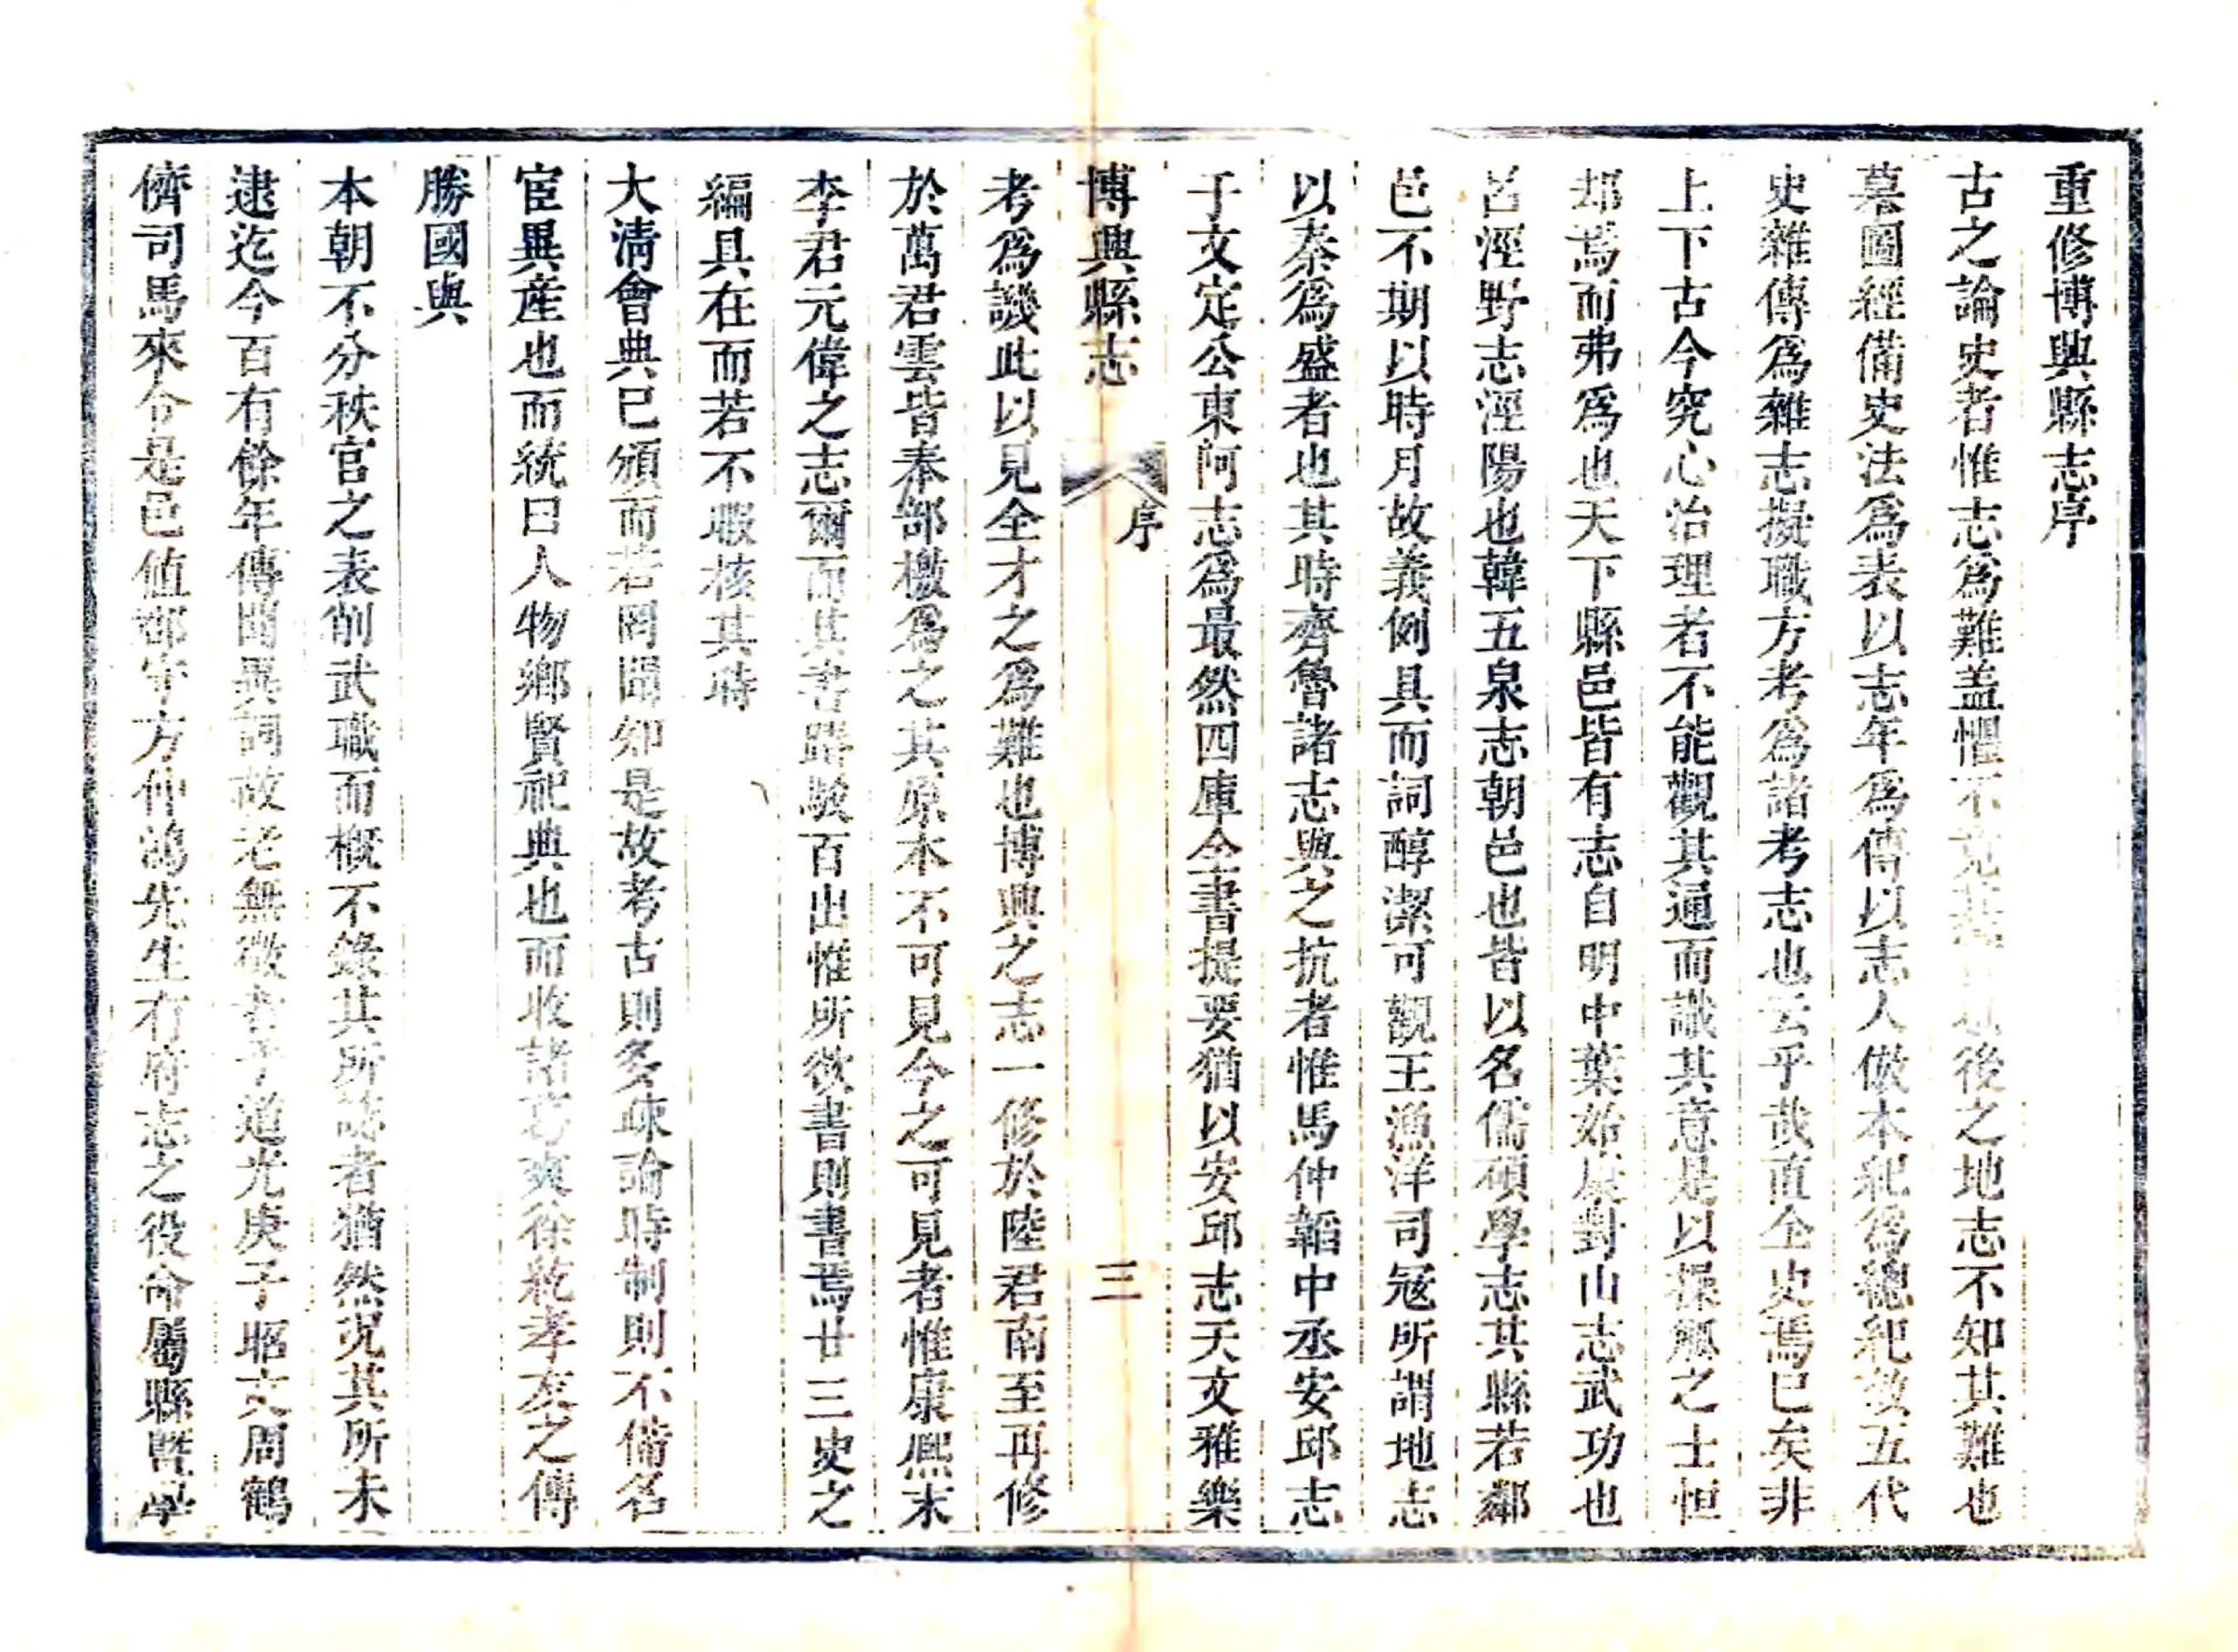 重修博興縣志序
古之論史者惟志為難盖懼不後之地志不知其難也
摹圖經備史法為表以志年為傳以志人倣本紀為總紀敓五代
史雜傳為雜志擬職方考為諸考志也云乎哉直全史焉已矣非
上下古今究心治理者不能觀其通而識其意是以操觚之士怛
却焉而弗為也天下縣邑皆有志自明中葉始康對山志武功也
呂涇野志涇陽也韓五泉志朝邑也皆以名儒碩學志其縣若鄰
邑不期以時月故義例具而詞醇潔可觀王漁洋司寇所謂地志
以秦為盛者也其時齊魯諸志與之抗者惟馬仲韜中丞安邱志
于文定公東阿志為最然四庫全書提要猶以安邱志天文雅樂
博興縣志 序 三
考為譏此以見全才之為難也博興之志一修於陸君南至再修
於萬君雲皆奉部檄為之其原本不可見今之可見者惟康熙末
李君元偉之志爾而其書踳駁百出惟所欲書則書焉廿三史之
編具在而若不暇核其時
大清會典已頒而若罔聞知是故考古則多疎論時制則不備名
宦異産也而統曰人物鄉賢祀典也而收諸葛爽徐乾孝友之傳
勝國與
本朝不分秩官之表削武職而概不錄其所誌者猶然況其所未
逮迄今百有餘年傳聞異詞故老無徵者乎道光庚子昭文周鶴
儕司馬來令是邑值郡守方仲鴻先生有府志之役命屬縣曁學